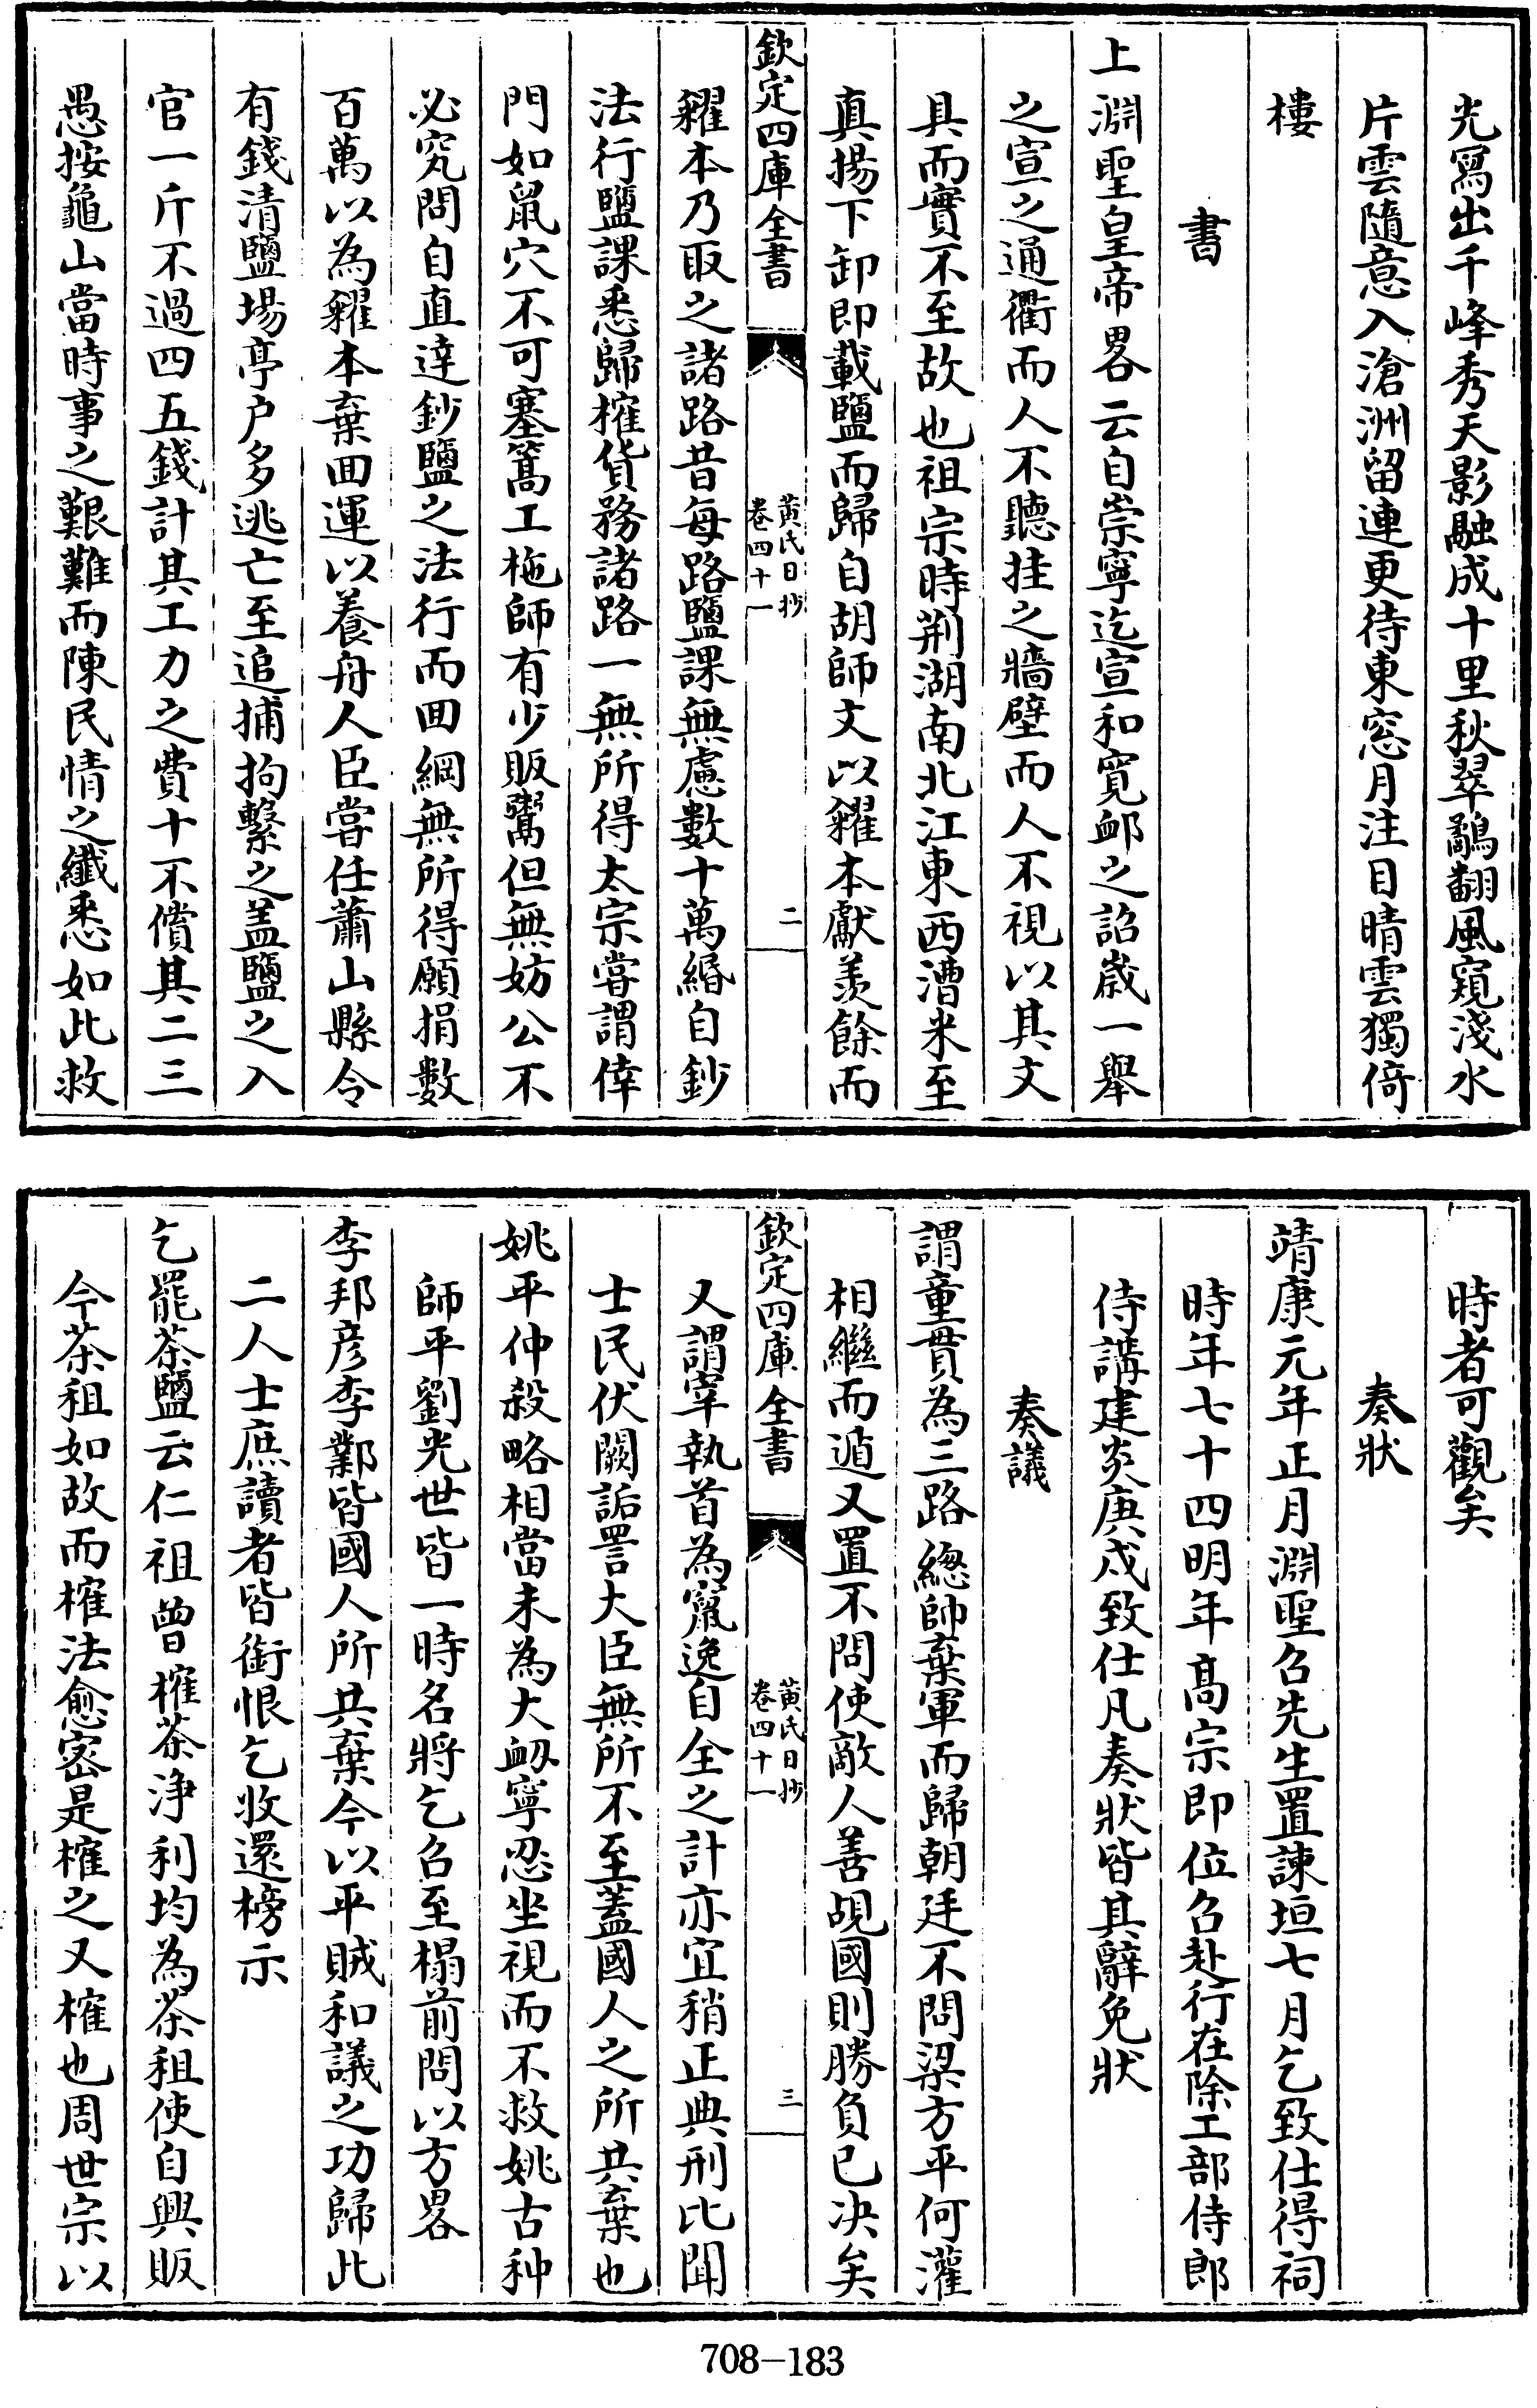 光寫出千峰秀天影融成十里秋翠鷸翻風窺淺水
片雲隨意入滄洲留連更待東窓月注目晴雲獨倚
樓
書
上淵聖皇帝畧云自崇寧迄宣和寛衈之詔歳一舉
之宣之通衢而人不聽挂之牆壁而人不視以其文
具而實不至故也祖宗時荆湖南北江東西漕米至
真揚下卸即載鹽而歸自胡師文以糴本獻羨餘而
欽定四庫全書
黄氏日抄
卷四十一
二
糴本乃取之諸路昔每路鹽課無慮數十萬緡自鈔
法行鹽課悉歸榷貨務諸路一無所得太宗嘗謂倖
門如鼠穴不可塞篙工柂師有少販鬻但無妨公不
必究問自直達鈔鹽之法行而回綱無所得願捐數
百萬以為糴本棄回運以養舟人臣嘗任蕭山縣令
有錢清鹽場亭户多逃亡至追捕拘繫之盖鹽之入
官一斤不過四五錢計其工力之費十不償其二三
愚按龜山當時事之艱難而陳民情之纎悉如此救
時者可觀矣
奏狀
靖康元年正月淵聖召先生置諫垣七月乞致仕得祠
時年七十四明年髙宗即位召赴行在除工部侍郎
侍講建炎庚戍致仕凡奏狀皆其辭免狀
奏議
謂童貫為三路總帥棄軍而歸朝廷不問梁方平何灌
相繼而遁又置不問使敵人善覘國則勝負已决矣
欽定四庫全書
黄氏日抄
卷四十一
三
又謂宰執首為竄逸自全之計亦宜稍正典刑比聞
士民伏闕詬詈大臣無所不至蓋國人之所共棄也
姚平仲殺略相當未為大衂寧忍坐視而不救姚古种
師平劉光世皆一時名將乞召至榻前問以方畧
李邦彦李鄴皆國人所共棄今以平賊和議之功歸此
二人士庶讀者皆銜恨乞收還榜示
乞罷茶鹽云仁祖曾榷茶浄利均為茶租使自興販
今茶租如故而榷法愈宻是榷之又榷也周世宗以
708-183